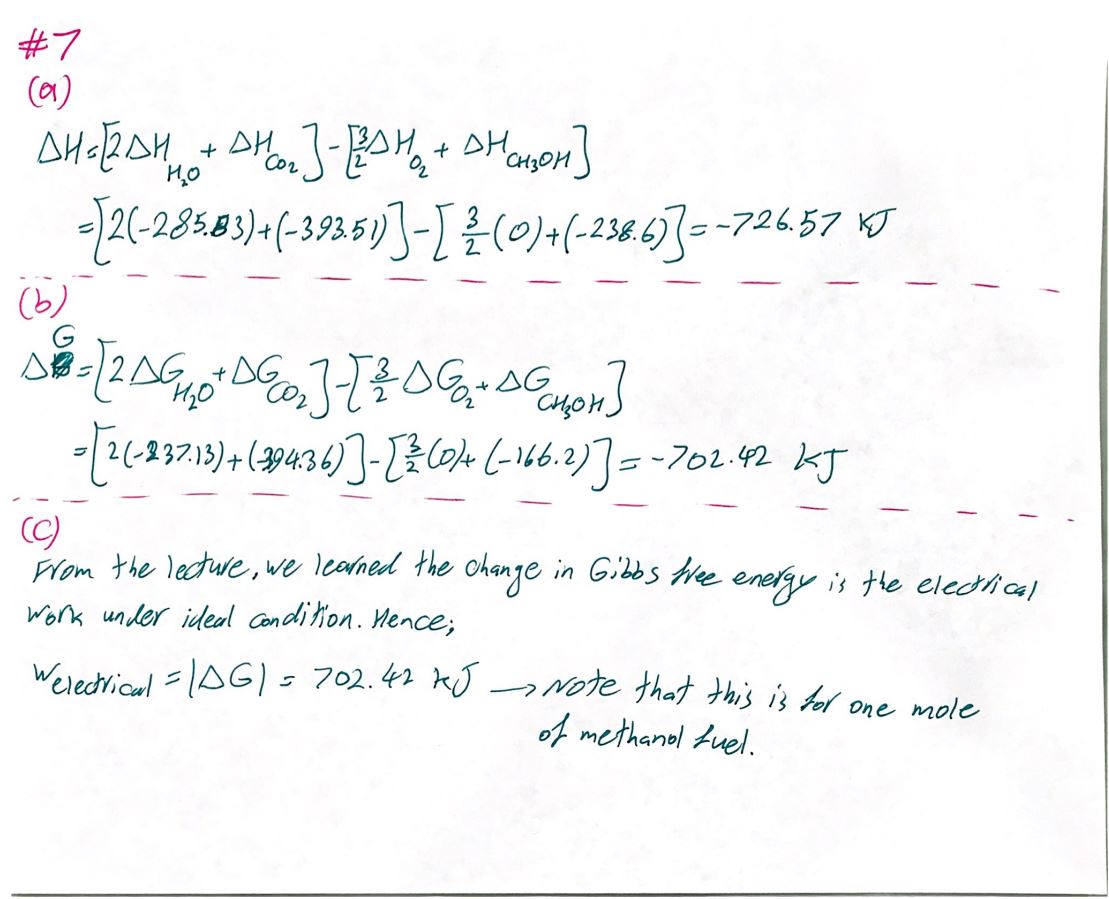 #7
(a)
ΔH=[2ΔH_H₂O + ΔH_CO₂]-[3/2ΔH_O₂ + ΔH_CH₃OH]
=[2(-285.83)+(-393.51)]-[3/2(0)+(-238.6)]=-726.57 kJ
(b)
ΔG=[2ΔG_H₂O+ΔG_CO₂]-[3/2ΔG_O₂+ΔG_CH₃OH]
=[2(-237.13)+(394.36)]-[3/2(0)+(-166.2)]=-702.42 kJ
(c)
From the lecture, we learned the change in Gibbs free energy is the electrical
work under ideal condition. Hence;
Welectrical = |ΔG| = 702.42 kJ → Note that this is for one mole
of methanol fuel.